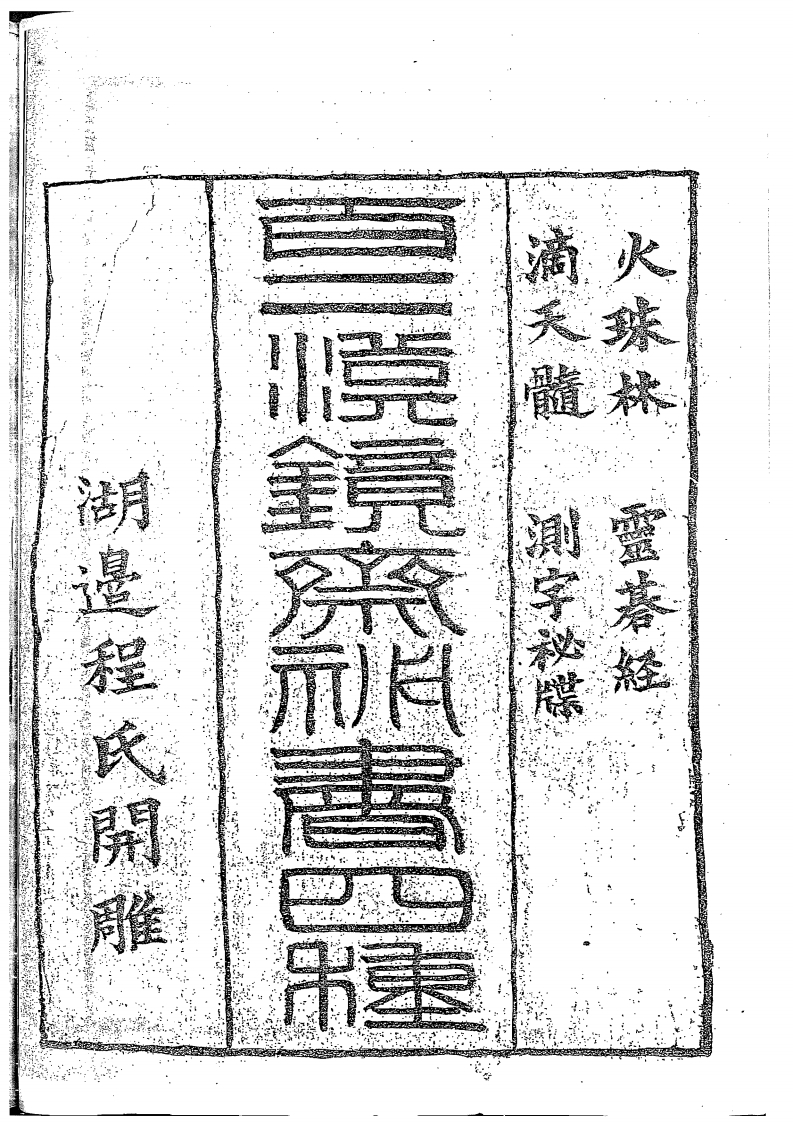 火珠林　靈碁経
滴天髓　測字秘牒
百二漢鏡齋祕書四種
湖邉程氏開雕